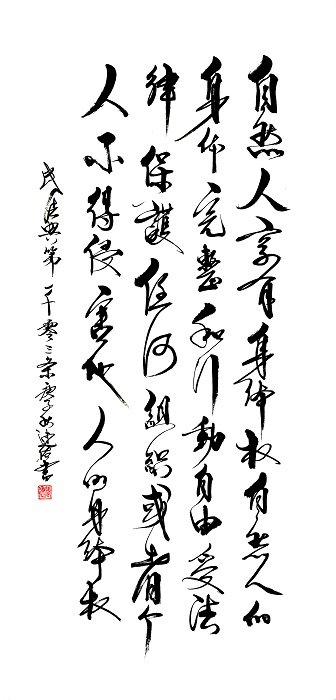 自然人享有身体权自然人的
身体完整和行動自由受法
律保護任何組織或者个
人不得侵害他人的身体权
民法典第一千零三条庚子書